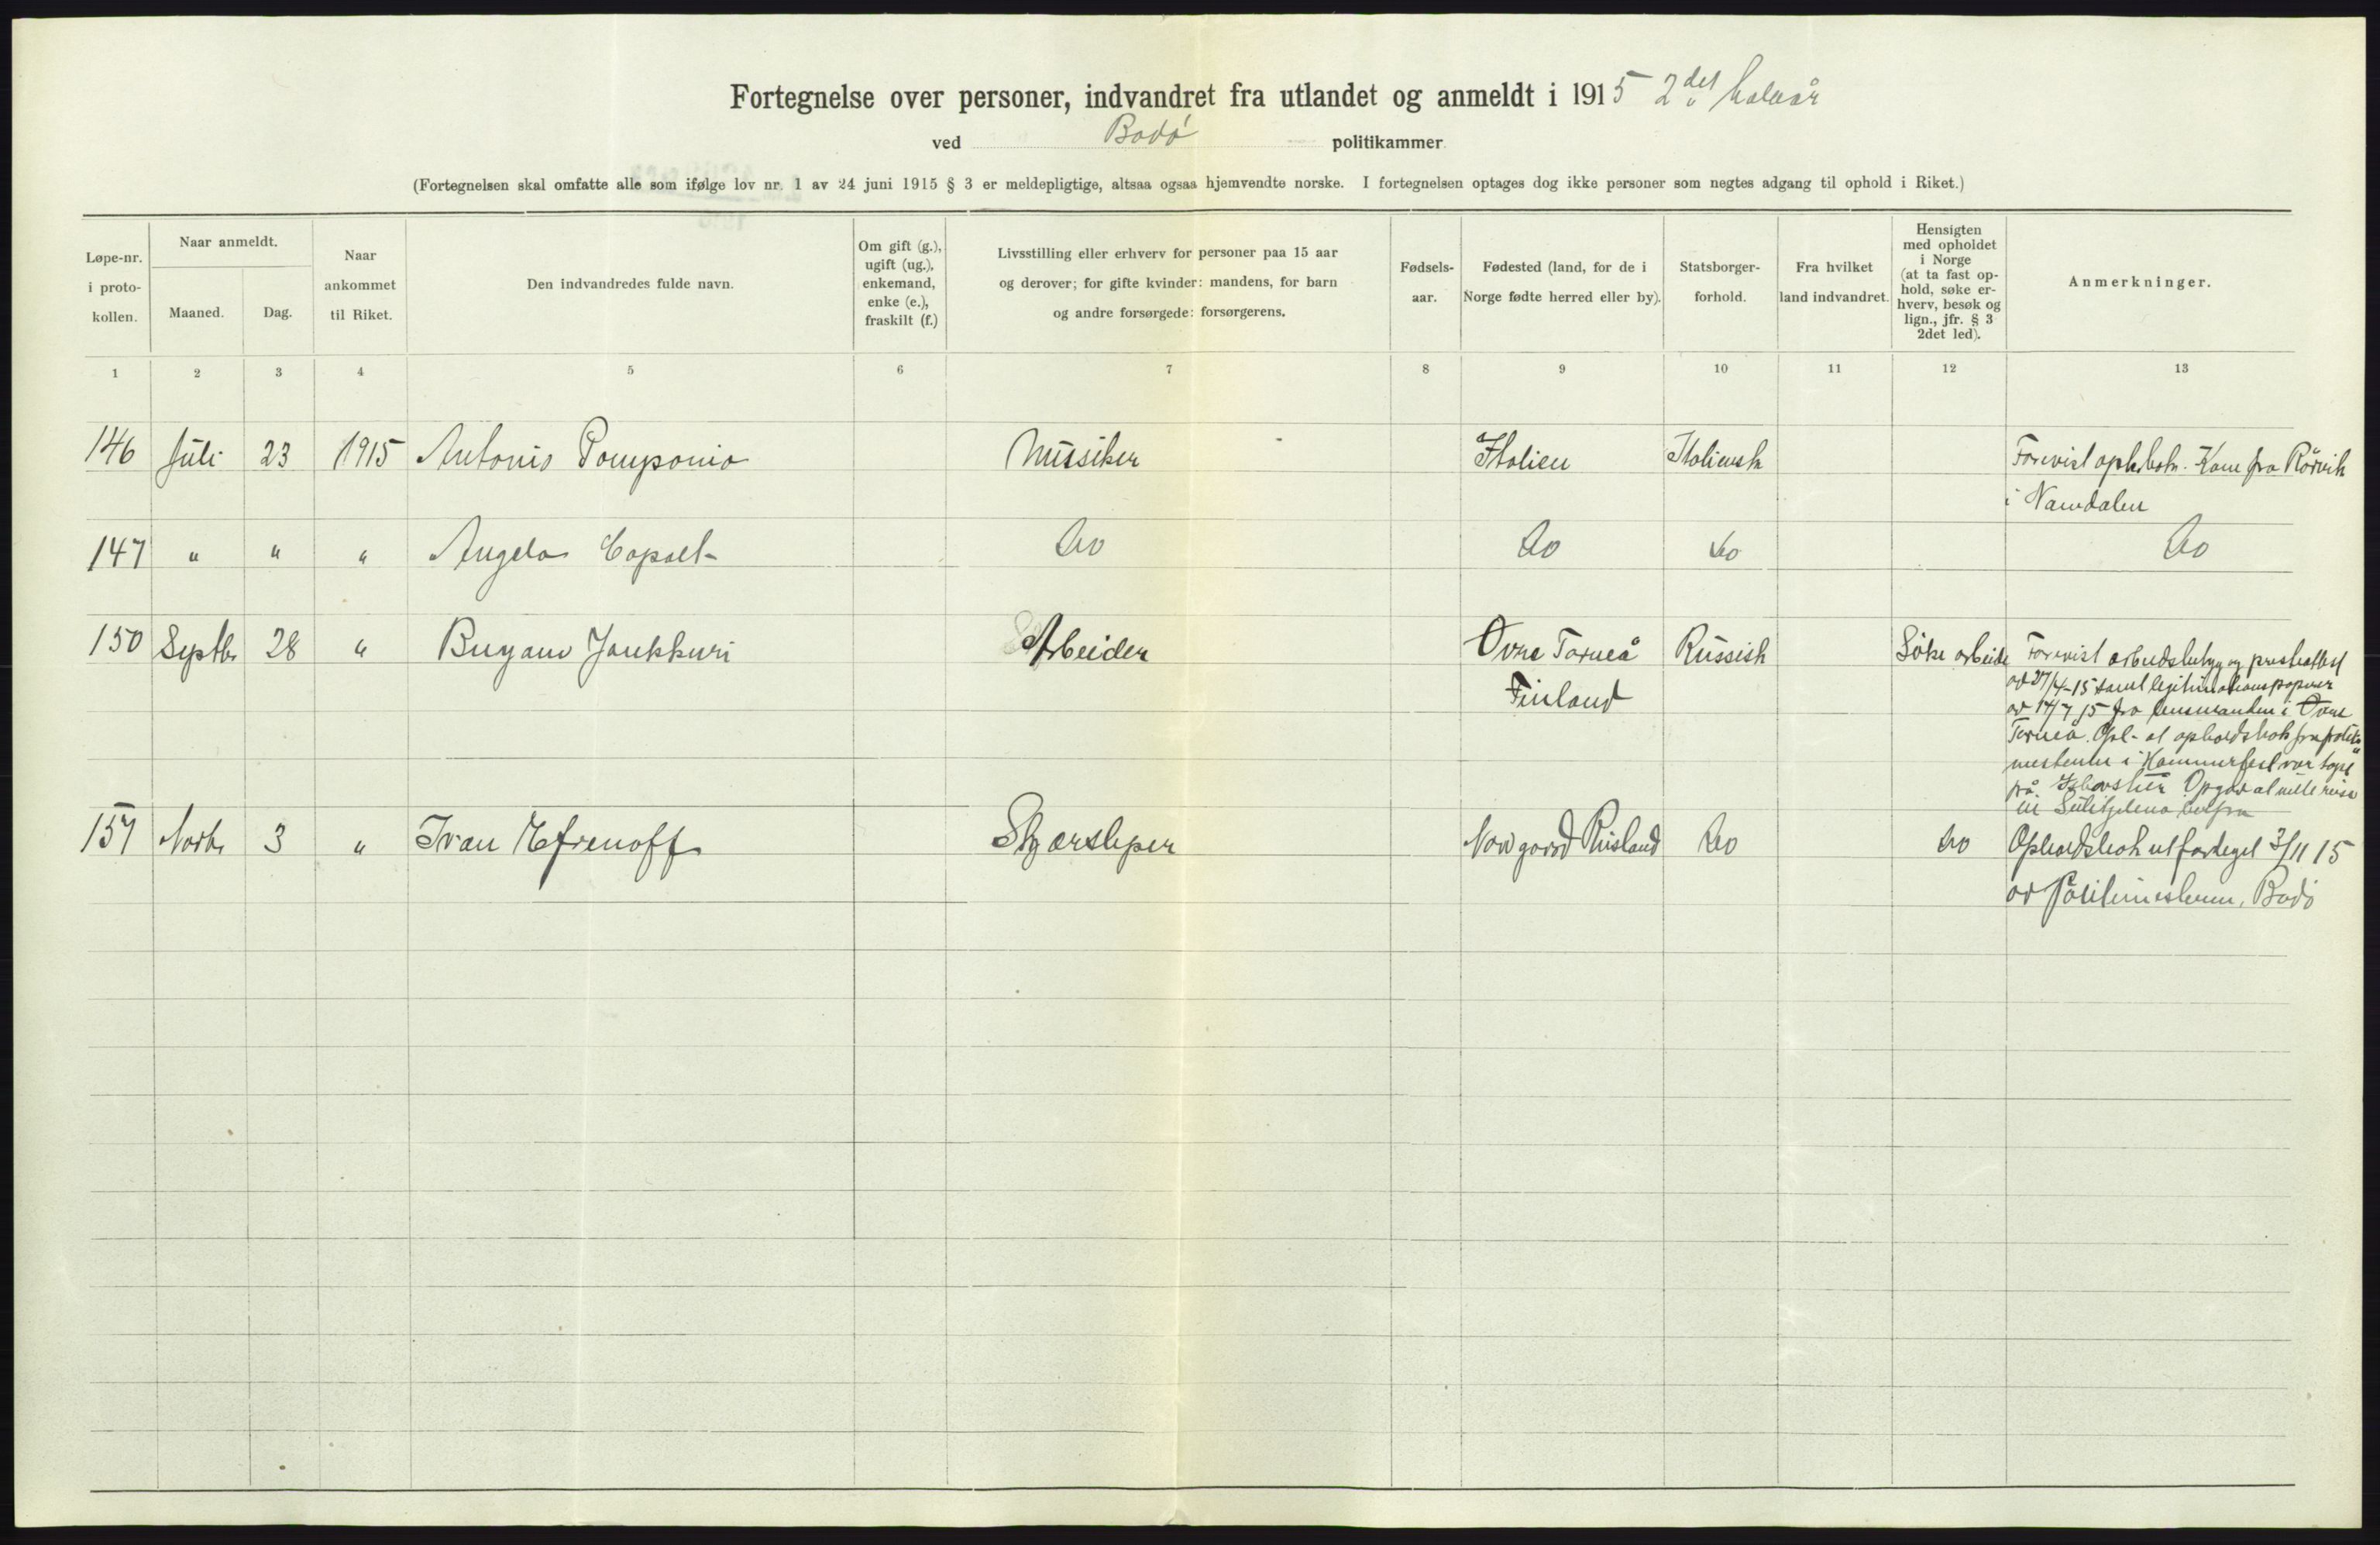 Fortegnelse over personer, indvandret fra utlandet og anmeldt i 1915 2det halvår
ved Bodø politikammer
(Fortegnelsen skal omfatte alle som ifølge lov nr. 1 av 24 juni 1915 § 3 er meldepligtige, altsaa ogsaa hjemvendte norske. I fortegnelsen optages dog ikke personer som negtes adgang til ophold i Riket.)
Løpe-nr. i proto- kollen.
Naar anmeldt.
Maaned.
Dag.
Naar ankommet til Riket.
Den indvandredes fulde navn.
Om gift (g.), ugift (ug.), enkemand, enke (e.), fraskilt (f.)
Livsstilling eller erhverv for personer paa 15 aar
og derover; for gifte kvinder: mandens, for barn
og andre forsørgede: forsørgerens.
Fødsels- aar.
Fødested (land, for de i
Norge fødte herred eller by).
Statsborger- forhold.
Fra hvilket land indvandret.
Hensigten
med opholdet
i Norge
(at ta fast op-
hold, søke er-
hverv, besøk og
lign., jfr. § 3
2det led).
Anmerkninger.
1 2 3 4 5 6 7 8 9 10 11 12 13
146 Juli 23 1915 Antonio Pomponio Musiker Italien Italiensk Forevist oph.bok. Kom fra Rörvik
i Namdalen
147 " " " Angelo do do do do
150 Septbr 28 " Jankkuri Arbeider Övre Torneå Russisk Söke arbeide Forevist arbeidsbetyg og prestattest
Finland
av 27/4-15 samt legitimationspapirer
av 17/7 15 fra lensmanden i Övre
Torneå. Opl. at opholdsbok fra politi-
mesteren i Hammerfest var tapt
på Opgav at ville reise
til Sulitjelma herfra
157 Novbr 3 " Ivan Efrenoff Skjærsliper Novgorod Rusland do do Opholdsbok utfærdiget 3/11 15
av Politimesteren, Bodö